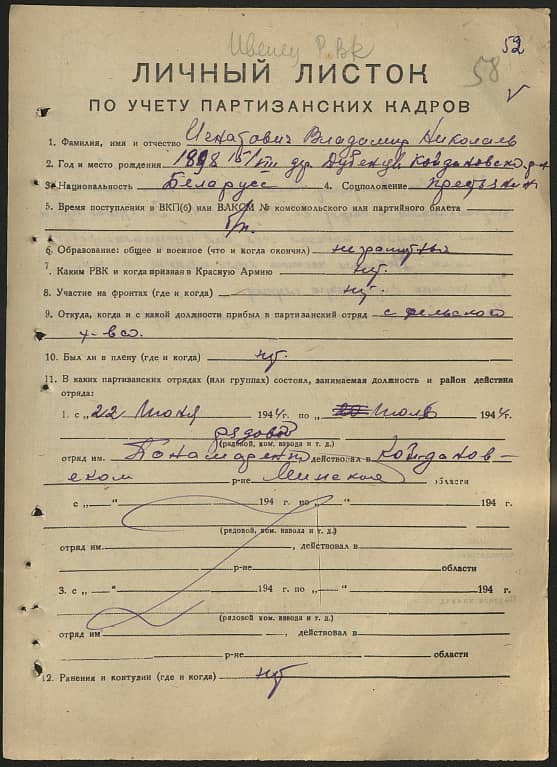 Ивенец РВК
52
58
ЛИЧНЫЙ ЛИСТОК
ПО УЧЕТУ ПАРТИЗАНСКИХ КАДРОВ
1. Фамилия, имя и отчество Игнатович Владимир Николаев
2. Год и место рождения 1898 дер. Койдановского р-н
3. Национальность Беларусс 4. Соцположение крестьянин
5. Время поступления в ВКП(б) или ВЛКСМ № комсомольского или партийного билета
б/п.
6. Образование: общее и военное (что и когда окончил) неграмотный
7. Каким РВК и когда призван в Красную Армию нт.
8. Участие на фронтах (где и когда) нт.
9. Откуда, когда и с какой должности прибыл в партизанский отряд с сельского
х-во.
10. Был ли в плену (где и когда) нт.
11. В каких партизанских отрядах (или группах) состоял, занимаемая должность и район действия
отряда:
1. с „22 Июня 1944г. по Июль 1944г.
рядовой
(рядовой, ком. взвода и т. д.)
отряд им. Пономаренко действовал в Койданов-
ском р-не Минской области
с „ — “ 194 г. по „ — “ 194 г.
(рядовой, ком. взвода и т. д.)
отряд им. , действовал в
р-не области
3. с „ — “ 194 г. по „ — “ 194 г.
(рядовой, ком. взвода и т. д.)
отряд им , действовал в
р-не области
12. Ранения и контузии (где и когда) нт